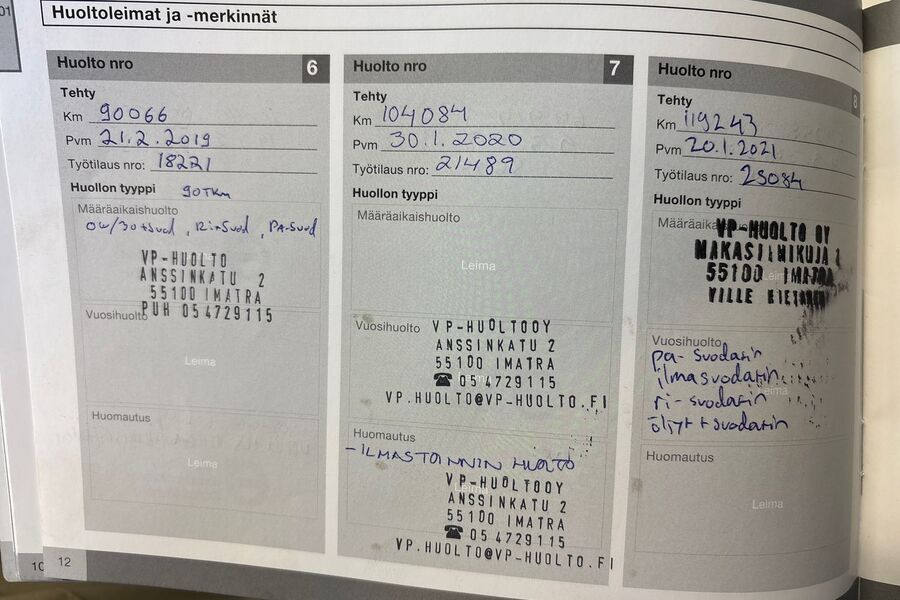 01
Huoltoleimat ja -merkinnät
Huolto nro 6
Tehty
Km 90066
Pvm 21.2.2019
Työtilaus nro: 18221
Huollon tyyppi 90TKm
Määräaikaishuolto
0W/30+suod, Ri+suod, Pa-suod
VP-HUOLTO
ANSSINKATU 2
55100 IMATRA
PUH 05 4729115
Vuosihuolto
Leima
Huomautus
Leima
Huolto nro 7
Tehty
Km 104084
Pvm 30.1.2020
Työtilaus nro: 21489
Huollon tyyppi
Määräaikaishuolto
Leima
Vuosihuolto
VP-HUOLTOOY
ANSSINKATU 2
55100 IMATRA
☎ 05 4729115
VP.HUOLTO@VP-HUOLTO.FI
Huomautus
-ILMASTOINNIN HUOLTO
Leima
VP-HUOLTOOY
ANSSINKATU 2
55100 IMATRA
☎ 05 4729115
VP.HUOLTO@VP-HUOLTO.FI
Huolto nro 8
Tehty
Km 119243
Pvm 20.1.2021
Työtilaus nro: 23084
Huollon tyyppi
VP-HUOLTO OY
MAKASIINIKUJA 1
55100 IMATRA
Leima
VILLE
Vuosihuolto
pa-suodatin
ilmasuodatin
ri-suodatin
öljyt+suodatin
Leima
Huomautus
Leima
10
12